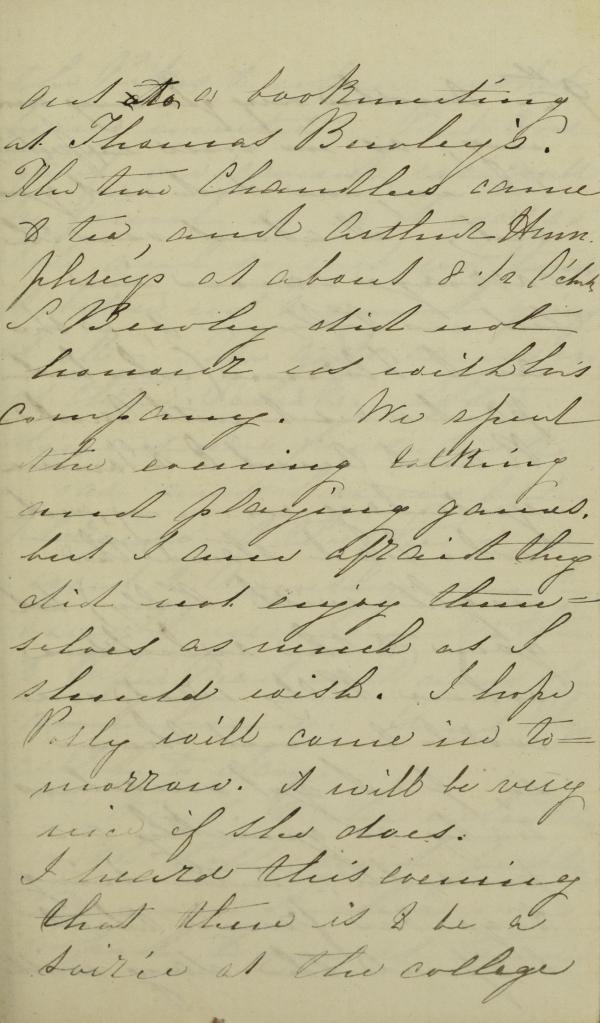 out to a bookmeeting
at Thomas Bewley's.
The two Chandlees came
to tea, and Arthur Hum
phreys at about 8 1/2 O'clock
S Bewley did not
honour us with his
company. We spent
the evening talking
and playing games.
but I am afraid they
did not enjoy them=
selves as much as I
should wish. I hope
Polly will come in to=
morrow. it will be very
nice if she does.
I heard this evening
that there is to be a
soirée at the college